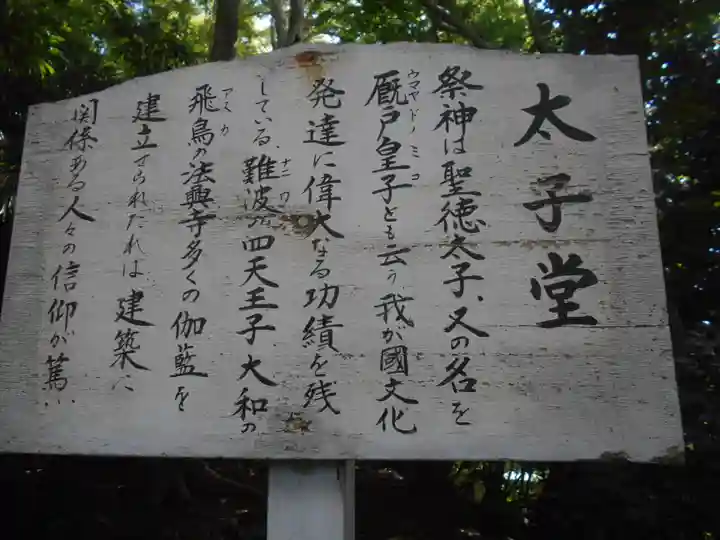 太子堂
祭神は聖徳太子、又の名を
厩戸皇子とも云う我が國文化
ウマヤドノミコ
発達に偉大なる功績を残
している、難波の四天王子大和の
ナニワ
飛鳥の法興寺多くの伽藍を
アスカ
建立せられたれは建築に
関係ある人々の信仰が篤い